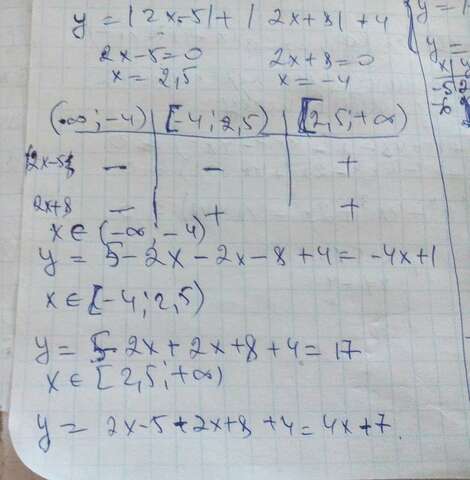 y = |2x-5| + |2x+8| + 4
2x-5=0 2x+8=0
x = 2,5 x = -4
(-∞; -4) [-4; 2,5) [2,5; +∞)
2x-5 - - +
2x+8 - + +
x ∈ (-∞; -4)
y = 5-2x-2x-8+4 = -4x+1
x ∈ [-4; 2,5)
y = 5-2x+2x+8+4 = 17
x ∈ [2,5; +∞)
y = 2x-5+2x+8+4 = 4x+7.